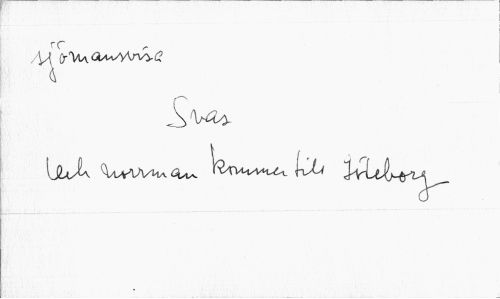 sjömansvisa
Svas
Och norrman kommer till Göteborg